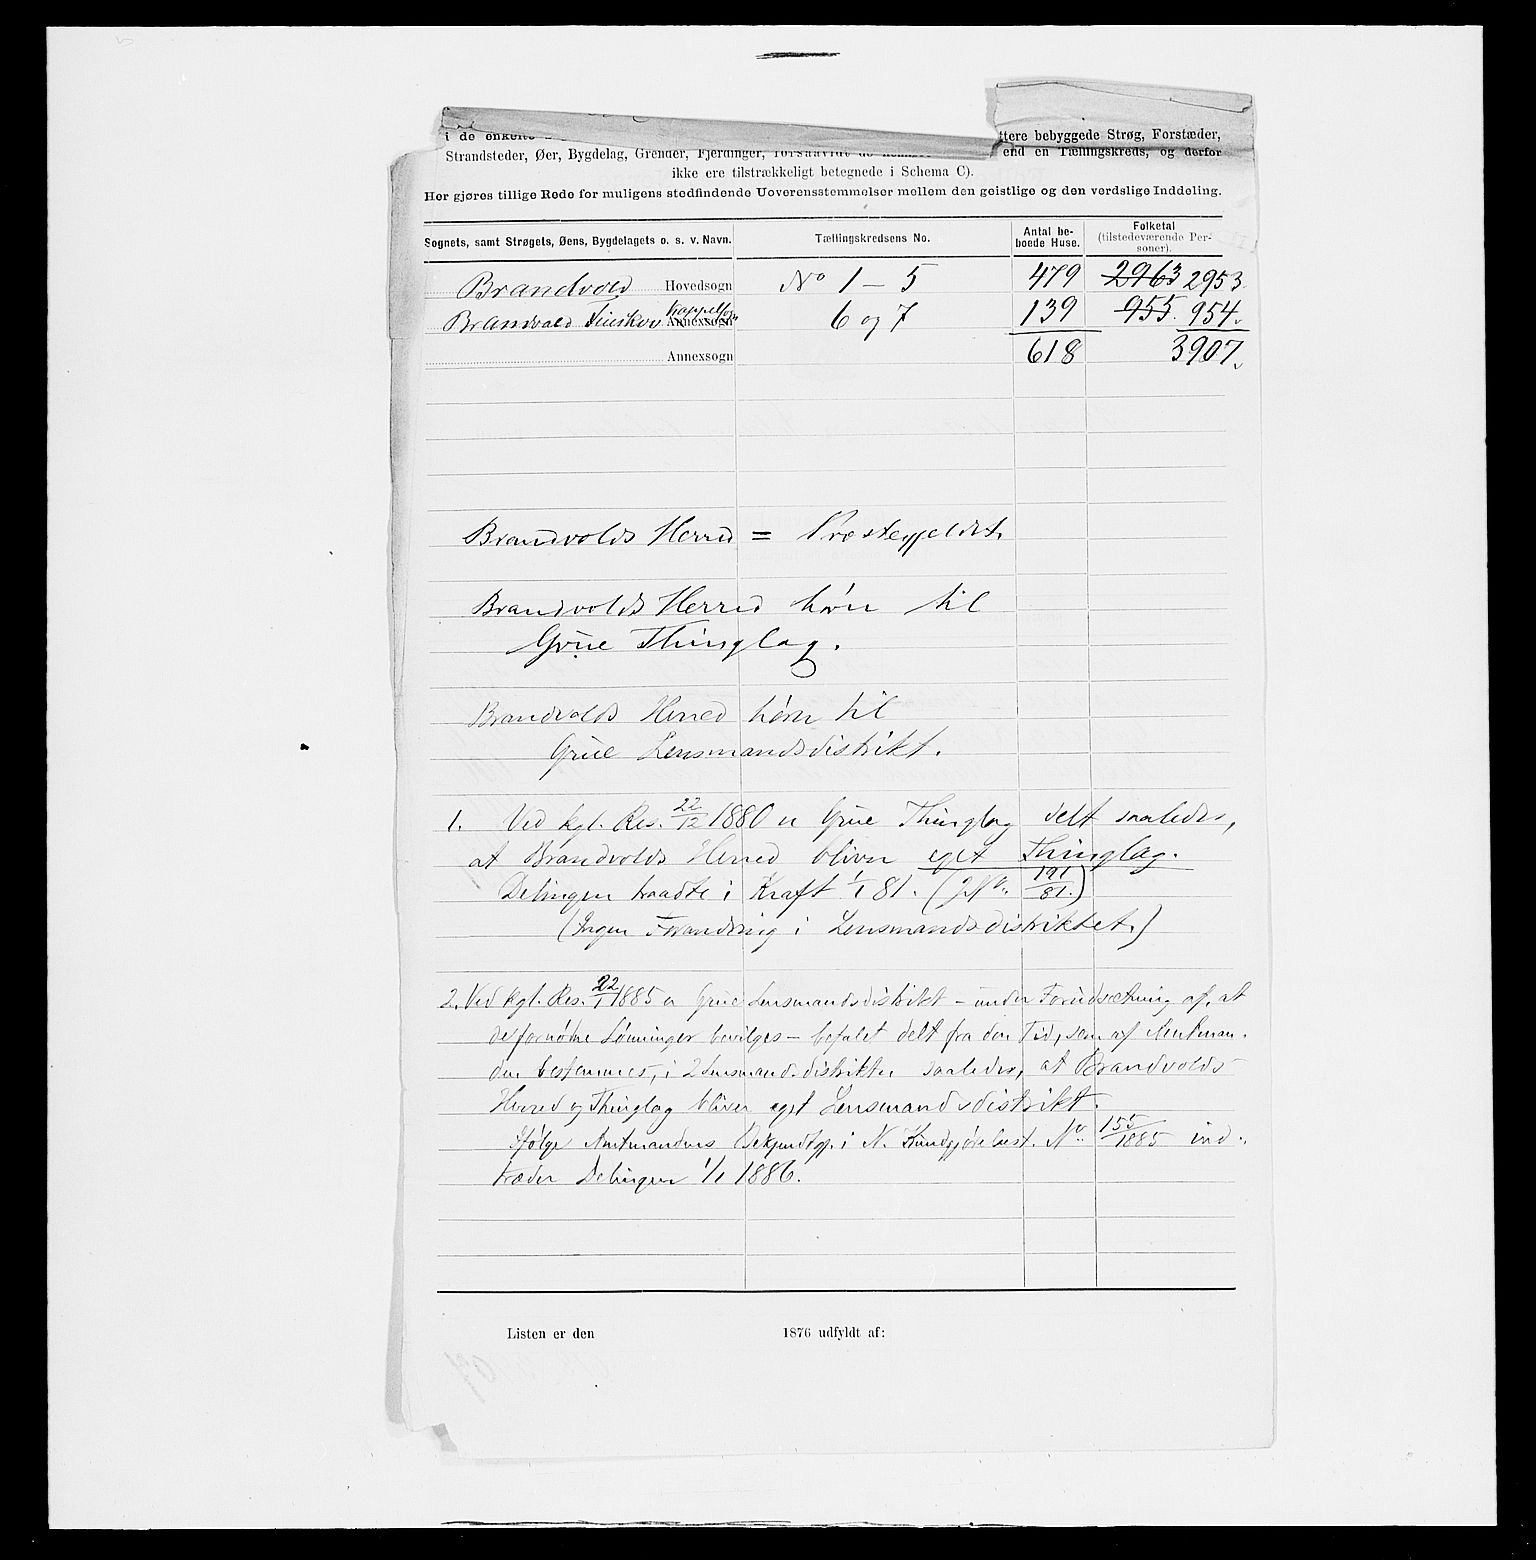 i de enkelte
ttere bebyggede Strøg, Forstæder,
Strandsteder, Øer, Bygdelag, Grender, Fjerdinger, forsaavidt de
end en Tællingskreds, og derfor
ikke ere tilstrækkeligt betegnede i Schema C).
Her gjøres tillige Rede for muligens stedfindende Uoverensstemmelser mellem den geistlige og den verdslige Inddeling.
Sognets, samt Strøgets, Øens, Bygdelagets o. s. v. Navn. Tællingskredsens No. Antal beboede Huse. Folketal (tilstedeværende Personer).
Brandvold Hovedsogn No 1 – 5 479 2963 2953
Brandvold Finskov Kappelsogn Annexsogn 6 og 7 139 955 954
Annexsogn 618 3907
Brandvolds Herred = Præstegjeldet.
Brandvolds Herred hører til
Grue Thinglag.
Brandvolds Herred hører til
Grue Lensmandsdistrikt.
1. Ved kgl. Res. 22/12 1880 er Grue Thinglag delt saaledes,
at Brandvolds Herred bliver eget Thinglag.
Delingen traadte i Kraft 1/1 81. (JNo. 191/81.)
(Ingen Forandring i Lensmandsdistriktet.)
2. Ved kgl. Res. 22/1 1885 er Grue Lensmandsdistrikt – under Forudsætning af, at
de fornødne Lønninger bevilges – befalet delt fra den Tid, som af Amtman-
den bestemmes, i 2 Lensmandsdistrikter saaledes, at Brandvolds
Herred og Thinglag bliver eget Lensmandsdistrikt.
Ifølge Amtmandens Bekjendtgj. i N. Kundgjørelsest. No. 155/1885 ind-
træder Delingen 1/1 1886.
Listen er den 1876 udfyldt af: